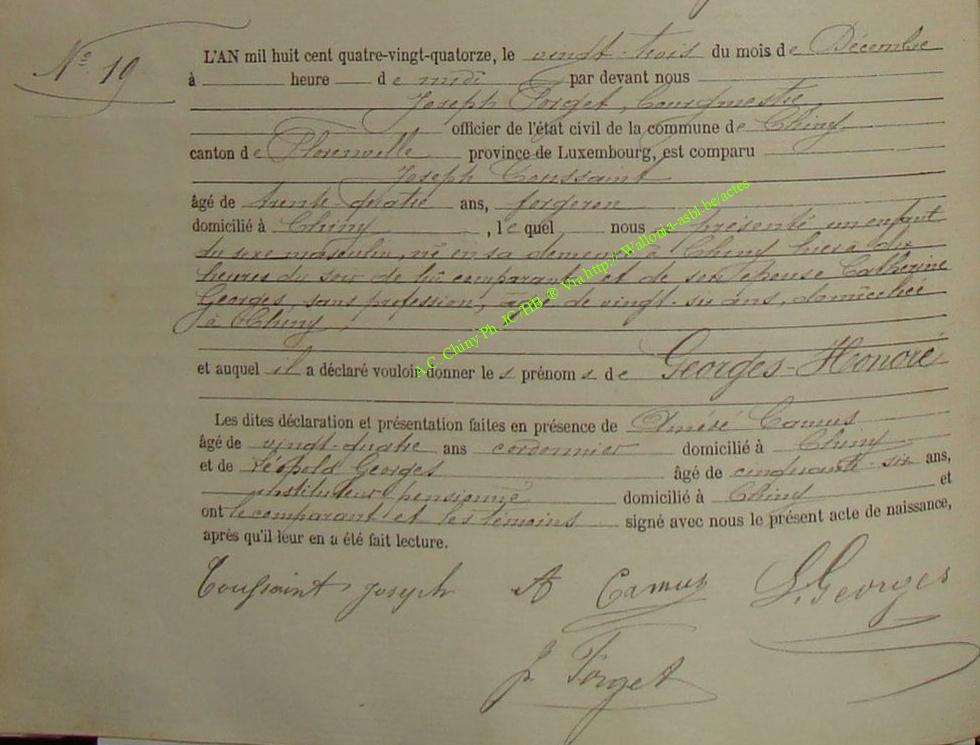 N° 19
L'AN mil huit cent quatre-vingt-quatorze, le vingt-trois du mois de Décembre
à heure de midi par devant nous
Joseph Forget, Bourgmestre,
officier de l'état civil de la commune de Chiny
canton de Florenville province de Luxembourg, est comparu
Joseph Toussaint
âgé de trente quatre ans, forgeron
domicilié à Chiny, lequel nous a présenté un enfant
du sexe masculin, né en sa demeure à Chiny hier à dix
heures du soir de lui comparant et de son épouse Catherine
Georges, sans profession, âgée de vingt-six ans, domiciliée
à Chiny,
et auquel il a déclaré vouloir donner les prénoms de Georges-Honoré
Les dites déclaration et présentation faites en présence de Camus
âgé de vingt-quatre ans cordonnier domicilié à Chiny
et de Léopold Georges âgé de cinquante-six ans,
instituteur pensionné domicilié à Chiny et
ont le comparant et les témoins signé avec nous le présent acte de naissance,
après qu'il leur en a été fait lecture.
Toussaint Joseph A Camus L. Georges
J. Forget
A.C. Chiny Ph. JC HB ® Via http://Wallonia-asbl.be/actes